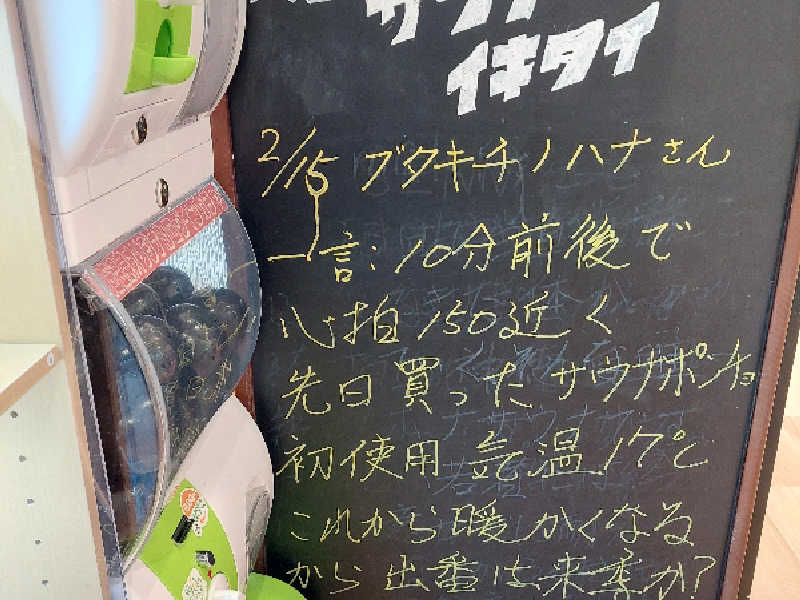 サウナ
イキタイ
2/15 ブタキチノハナさん
一言:10分前後で
心拍150近く
先日買ったサウナポンチョ
初使用 気温17℃
これから暖かくなる
から出番は来季か?